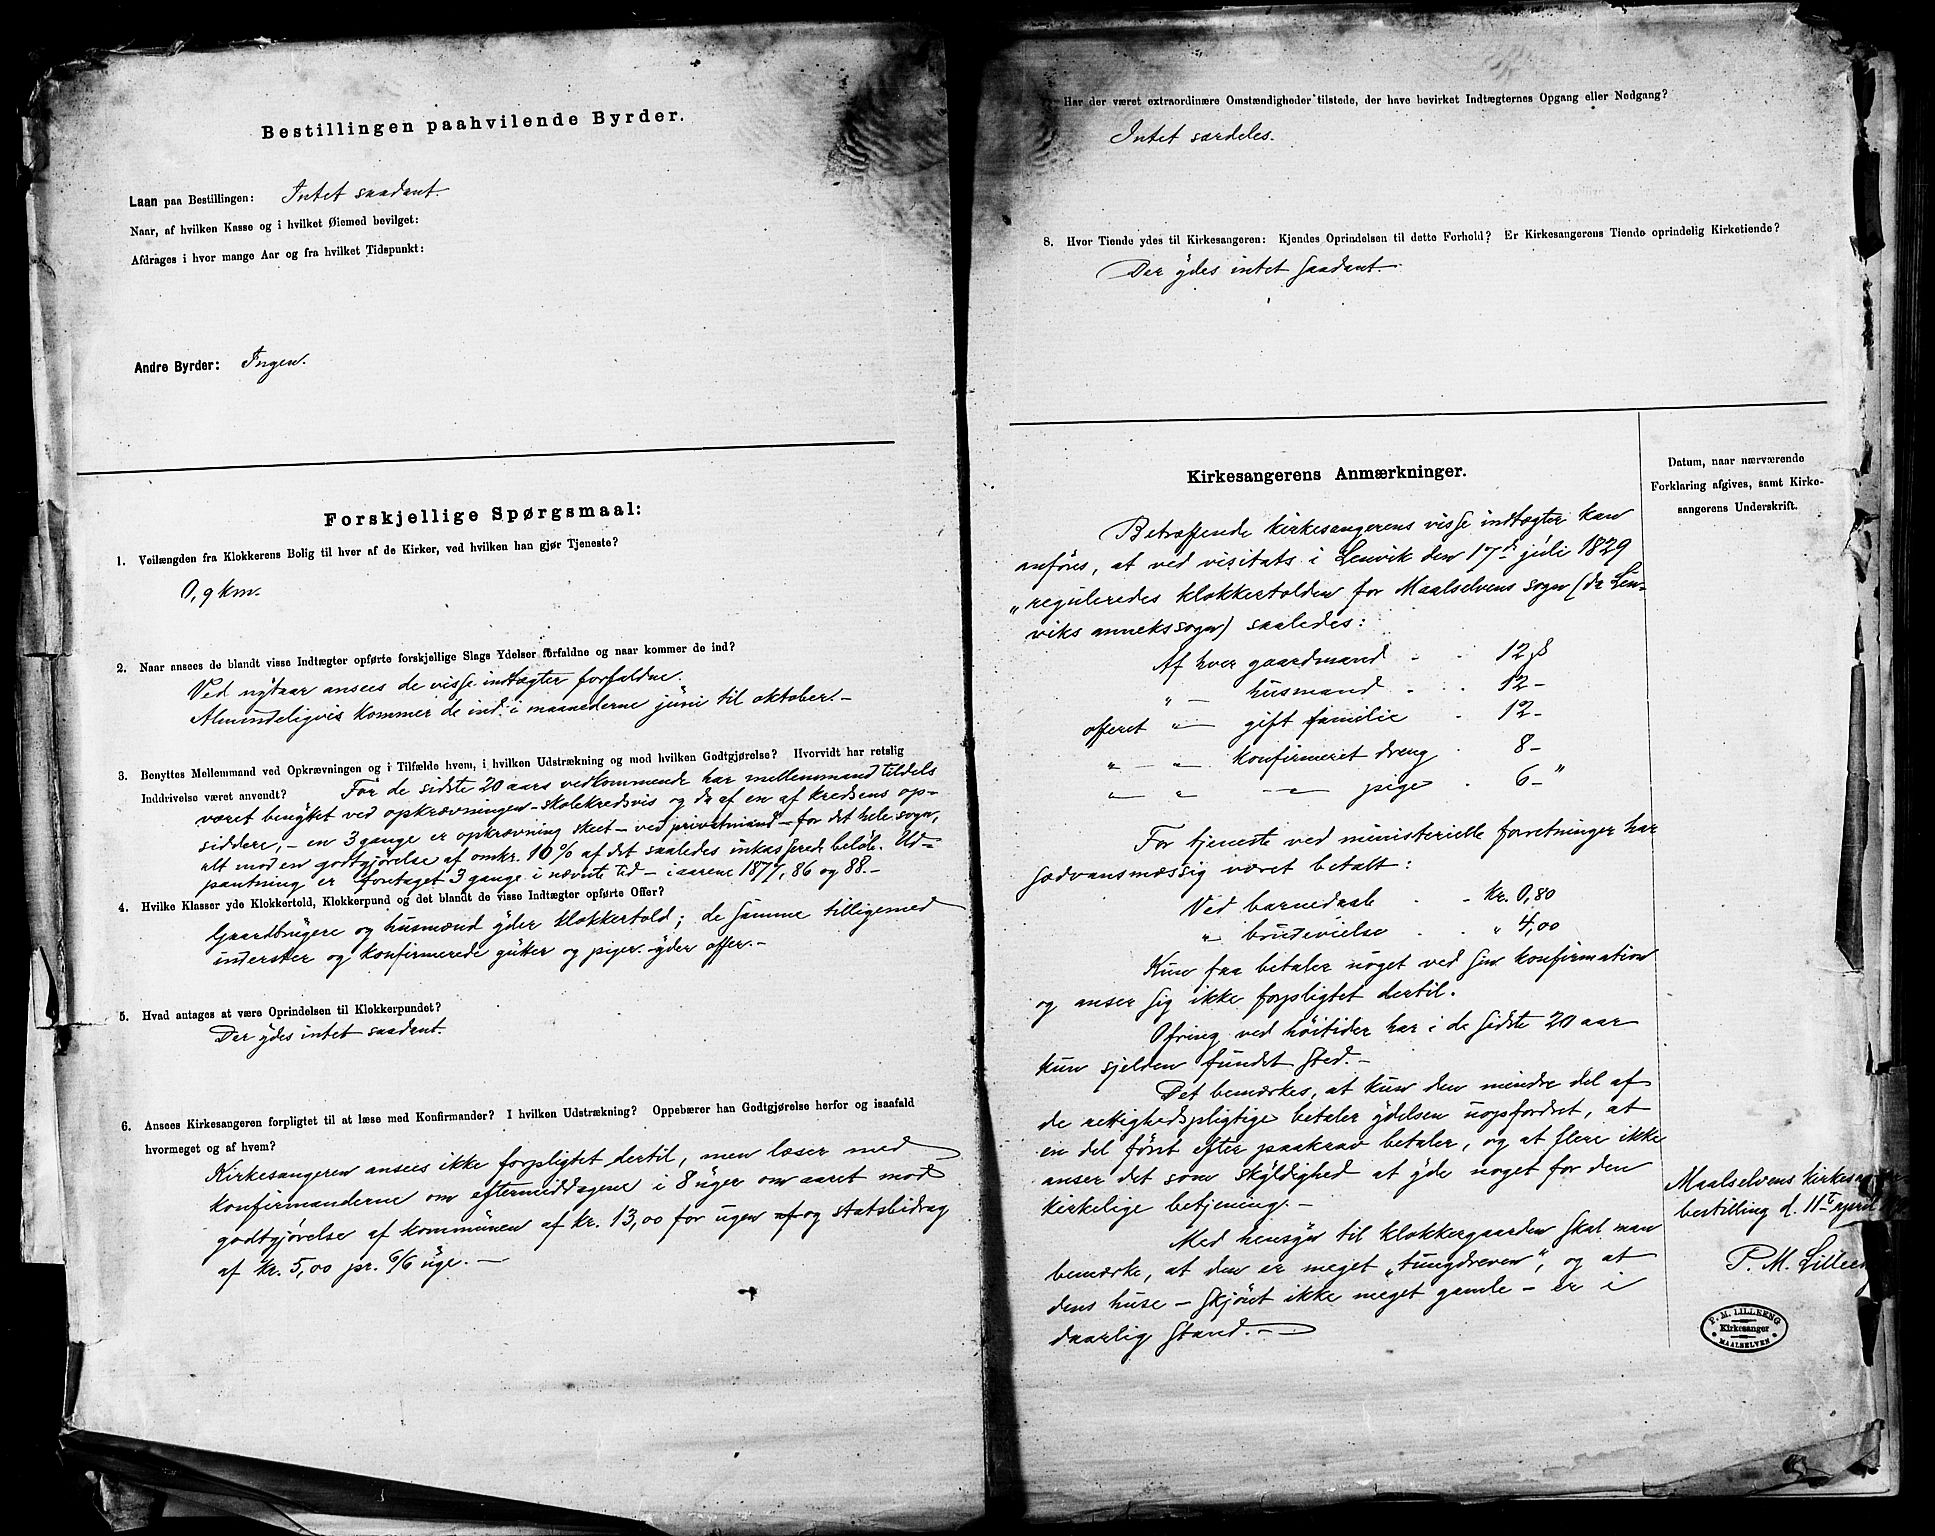 Bestillingen paahvilende Byrder.
Laan paa Bestillingen: Intet saadant.
Naar, af hvilken Kasse og i hvilket Øiemed bevilget:
Afdrages i hvor mange Aar og fra hvilket Tidspunkt:
Andre Byrder: Ingen.
Forskjellige Spørgsmaal:
1. Veilængden fra Klokkerens Bolig til hver af de Kirker, ved hvilken han gjør Tjeneste?
0,9 km.
2. Naar ansees de blandt visse Indtægter opførte forskjellige Slags Ydelser forfaldne og naar kommer de ind?
Ved nytaar ansees de visse indtægter forfaldne.
Almindeligvis kommer de ind i maanederne juni til oktober.–
3. Benyttes Mellemmand ved Opkrævningen og i Tilfælde hvem, i hvilken Udstrækning og mod hvilken Godtgjørelse? Hvorvidt har retslig
Inddrivelse været anvendt? For de sidste 20 aars vedkommende har mellemmand tildels
været benyttet ved opkrævningen – skolekredsvis og da af en af kredsens op–
siddere, – en 3 gange er opkrævning skeet – ved "privatmand" – for det hele sogn,
alt mod en godtgjörelse af omkr. 10 % af det saaledes inkasserede belöb. Ud–
pantning er foretaget 3 gange i nævnte tid – i aarene 1877, 86 og 88.–
4. Hvilke Klasser yde Klokkertold, Klokkerpund og det blandt de visse Indtægter opførte Offer?
Gaardbrugere og husmænd yder klokkertold; de samme tilligemed
inderster og konfirmerede gutter og piger yder offer.–
5. Hvad antages at være Oprindelsen til Klokkerpundet?
Der ydes intet saadant.
6. Ansees Kirkesangeren forpligtet til at læse med Konfirmander? I hvilken Udstrækning? Oppebærer han Godtgjørelse herfor og isaafald
hvormeget og af hvem?
Kirkesangeren ansees ikke forpligtet dertil, men læser med
konfirmanderne om eftermiddagene i 8 uger om aaret mod
godtgjörelse af kommunen af kr. 13,00 for ugen af og statsbidrag
af kr. 5,00 pr. 6/6 uge.–
Har der været extraordinære Omstændigheder tilstede, der have bevirket Indtægternes Opgang eller Nedgang?
Intet særdeles.
8. Hvor Tiende ydes til Kirkesangeren: Kjendes Oprindelsen til dette Forhold? Er Kirkesangerens Tiende oprindelig Kirketiende?
Der ydes intet saadant.
Kirkesangerens Anmærkninger.
Datum, naar nærværende
Forklaring afgives, samt Kirke-
sangerens Underskrift.
Betræffende kirkesangerens visse indtægter kan
anföres, at ved visitats i Lenvik den 17de juli 1829
"reguleredes klokkertolden for Maalselvens sogn (da Len–
viks annekssogn) saaledes:
Af hver gaardmand . . 12 ß
" – husmand . . 12 –
offeret " – gift familie . 12 –
" – " konfirmeret dreng . 8 –
" – " – " – pige . 6 – "
For tjeneste ved ministerielle forretninger har
sædvansmæssig været betalt:
Ved barnedaab . . kr. 0,80
" brudevielse . . " 4,00
Kun faa betaler noget ved sin konfirmation
og anser sig ikke forpligtet dertil.
Ofring ved höitider har i de sidste 20 aar
kun sjelden fundet sted.–
Det bemærkes, at kun den mindre del af
de rettighedspligtige betaler ydelsen uopfordret, at
en del först efter paakrav betaler, og at flere ikke
anser det som skyldighed at yde noget for den
kirkelige betjening.–
Med hensyn til klokkergaarden skal man
bemærke, at den er meget "tungdreven", og at
dens huse – skjönt ikke meget gamle – er i
daarlig stand.–
Maalselvens kirkesanger
bestilling d. 11te april
P. M. Lilleeng
P. M. LILLEENG
Kirkesanger
MAALSELVEN